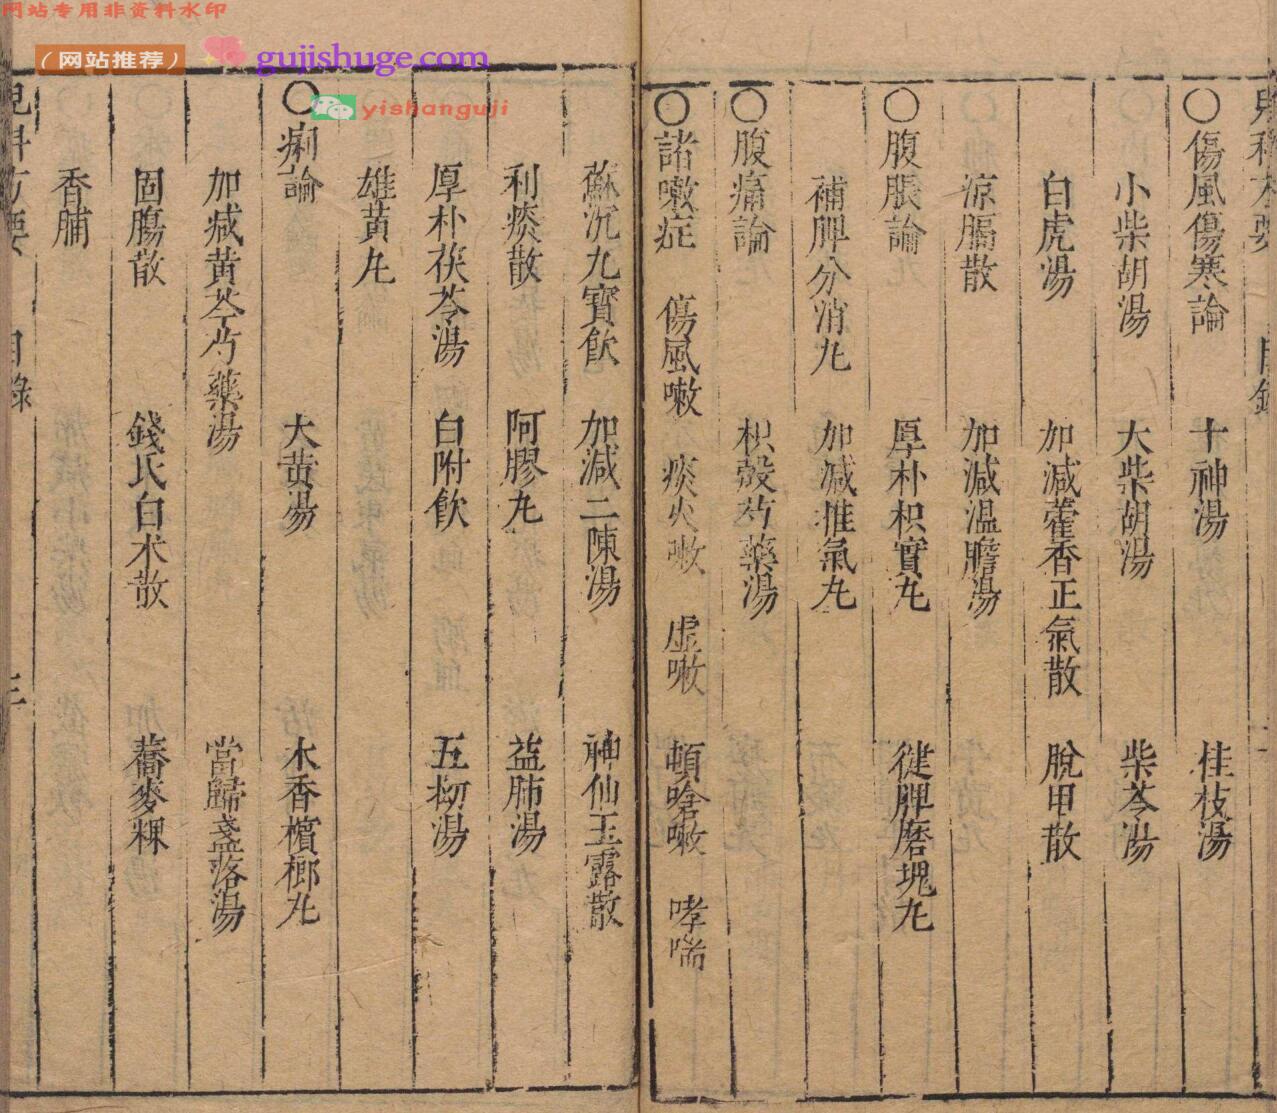 网站专用非资料水印
（网站推荐）
gujishuge.com
yishanguji
○傷風傷寒論 十神湯 桂枝湯
小柴胡湯 大柴胡湯 柴苓湯
白虎湯 加減藿香正氣散 脫甲散
涼膈散 加減温膽湯
○腹脹論 厚朴枳實丸 徙脾磨塊丸
補脾分消丸 加減推氣丸
○腹痛論 枳殼芍藥湯
○諸嗽症 傷風嗽 痰火嗽 虛嗽 頓嗆嗽 哮喘
蘇沉九寶飲 加減二陳湯 神仙玉露散
利痰散 阿膠丸 益肺湯
厚朴茯苓湯 白附飲 五拗湯
雄黃丸
○痢論 大黃湯 木香檳榔丸
加减黃芩芍藥湯 當歸盞落湯
固腸散 錢氏白术散 蕎麥粿
香脯
目錄
三